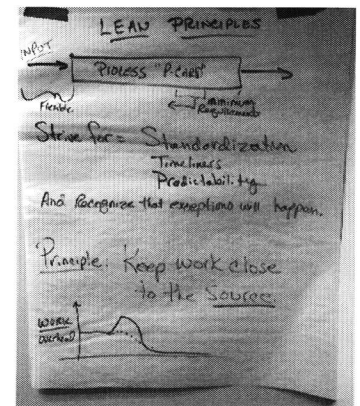 LEAN PRINCIPLES
INPUT
PIDLESS "P-CARD"
Flexible.
Minimum
Requirements
Strive for = Standardization
Timeliness
Predictability
And Recognize that exceptions will happen.
Principle: Keep work close
to the Source
WORK
Overhead